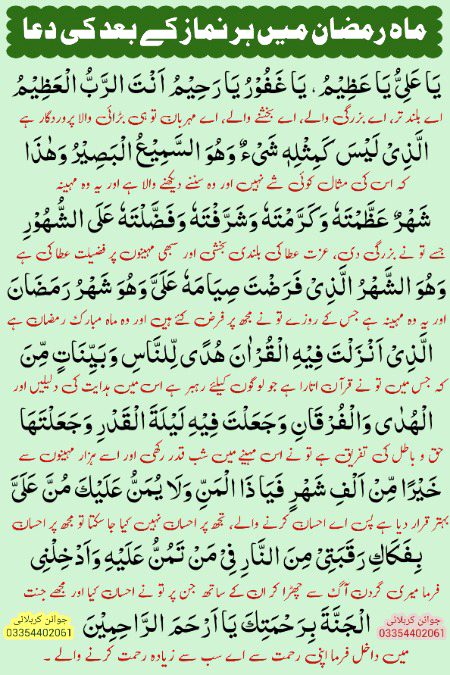 ماہ رمضان میں ہر نماز کے بعد کی دعا
يَا عَلِيُّ يَا عَظِيْمُ، يَا غَفُوْرُ يَا رَحِيْمُ اَنْتَ الرَّبُّ الْعَظِيْمُ
اے بلند تر، اے بزرگی والے، اے بخشنے والے، اے مہربان تو ہی بڑائی والا پروردگار ہے
الَّذِىْ لَيْسَ كَمِثْلِهٖ شَىْءٌ وَهُوَ السَّمِيْعُ الْبَصِيْرُ وَهٰذَا
کہ اس کی مثال کوئی شے نہیں اور وہ سننے دیکھنے والا ہے اور یہ وہ مہینہ
شَهْرٌ عَظَّمْتَهٗ وَكَرَّمْتَهٗ وَشَرَّفْتَهٗ وَفَضَّلْتَهٗ عَلَى الشُّهُوْرِ
جسے تو نے بزرگی دی، عزت عطا کی بلندی بخشی اور سبھی مہینوں پر فضیلت عطا کی ہے
وَهُوَ الشَّهْرُ الَّذِىْ فَرَضْتَ صِيَامَهٗ عَلَيَّ وَهُوَ شَهْرُ رَمَضَانَ
اور یہ وہ مہینہ ہے جس کے روزے تو نے مجھ پر فرض کئے ہیں اور وہ ماہ مبارک رمضان ہے
الَّذِىْ اَنْزَلْتَ فِيْهِ الْقُرْاٰنَ هُدًى لِّلنَّاسِ وَبَيِّنَاتٍ مِّنَ
کہ جس میں تو نے قرآن اتارا ہے جو لوگوں کیلئے رہبر ہے اس میں ہدایت کی دلیلیں اور
الْهُدٰى وَالْفُرْقَانِ وَجَعَلْتَ فِيْهِ لَيْلَةَ الْقَدْرِ وَجَعَلْتَهَا
حق و باطل کی تفریق ہے تو نے اس مہینے میں شب قدر رکھی اور اسے ہزار مہینوں سے
خَيْرًا مِّنْ اَلْفِ شَهْرٍ فَيَا ذَا الْمَنِّ وَلَا يُمَنُّ عَلَيْكَ مُنَّ عَلَيَّ
بہتر قرار دیا ہے پس اے احسان کرنے والے، تجھ پر احسان نہیں کیا جا سکتا تو مجھ پر احسان
بِفَكَاكِ رَقَبَتِىْ مِنَ النَّارِ فِىْ مَنْ تَمُنُّ عَلَيْهِ وَاَدْخِلْنِى
فرما میری گردن آگ سے چھڑا کر ان کے ساتھ جن پر تو نے احسان کیا اور مجھے جنت
جوائن کربلائی
03354402061
الْجَنَّةَ بِرَحْمَتِكَ يَا اَرْحَمَ الرَّاحِمِيْنَ
جوائن کربلائی
03354402061
میں داخل فرما اپنی رحمت سے اے سب سے زیادہ رحمت کرنے والے ۔